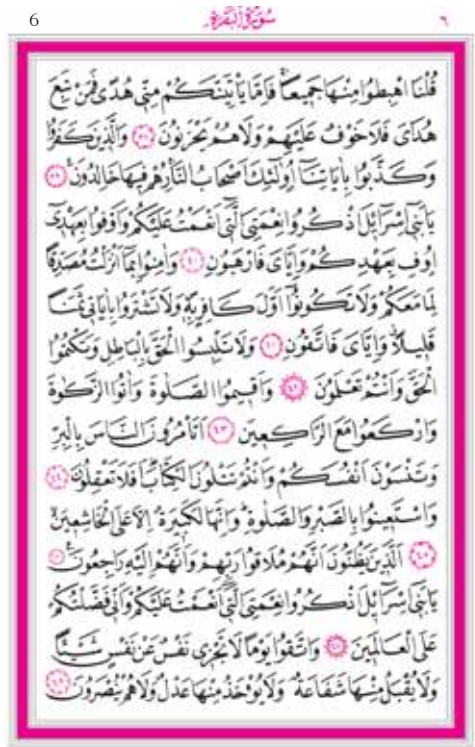 6 سُورَةُ الْبَقَرَةِ ٦
قُلْنَا اهْبِطُوا مِنْهَا جَمِيعًاۚ فَاِمَّا يَأْتِيَنَّكُمْ مِنّ۪ى هُدًى فَمَنْ تَبِعَ
هُدَاىَ فَلَا خَوْفٌ عَلَيْهِمْ وَلَا هُمْ يَحْزَنُونَ ﴿٣٨﴾ وَالَّذ۪ينَ كَفَرُوا
وَكَذَّبُوا بِاٰيَاتِنَٓا اُو۬لٰٓئِكَ اَصْحَابُ النَّارِۚ هُمْ ف۪يهَا خَالِدُونَ۟ ﴿٣٩﴾
يَا بَن۪ٓى اِسْرَٓائ۪لَ اذْكُرُوا نِعْمَتِىَ الَّت۪ٓى اَنْعَمْتُ عَلَيْكُمْ وَاَوْفُوا بِعَهْد۪ٓى
اُو۫فِ بِعَهْدِكُمْۚ وَاِيَّاىَ فَارْهَبُونِ ﴿٤٠﴾ وَاٰمِنُوا بِمَٓا اَنْزَلْتُ مُصَدِّقًا
لِمَا مَعَكُمْ وَلَا تَكُونُٓوا اَوَّلَ كَافِرٍ بِه۪ۖ وَلَا تَشْتَرُوا بِاٰيَات۪ى ثَمَنًا
قَل۪يلًاۘ وَاِيَّاىَ فَاتَّقُونِ ﴿٤١﴾ وَلَا تَلْبِسُوا الْحَقَّ بِالْبَاطِلِ وَتَكْتُمُوا
الْحَقَّ وَاَنْتُمْ تَعْلَمُونَ ﴿٤٢﴾ وَاَق۪يمُوا الصَّلٰوةَ وَاٰتُوا الزَّكٰوةَ
وَارْكَعُوا مَعَ الرَّاكِع۪ينَ ﴿٤٣﴾ اَتَأْمُرُونَ النَّاسَ بِالْبِرِّ
وَتَنْسَوْنَ اَنْفُسَكُمْ وَاَنْتُمْ تَتْلُونَ الْكِتَابَۜ اَفَلَا تَعْقِلُونَ ﴿٤٤﴾
وَاسْتَع۪ينُوا بِالصَّبْرِ وَالصَّلٰوةِۜ وَاِنَّهَا لَكَب۪يرَةٌ اِلَّا عَلَى الْخَاشِع۪ينَۙ
﴿٤٥﴾ اَلَّذ۪ينَ يَظُنُّونَ اَنَّهُمْ مُلَاقُوا رَبِّهِمْ وَاَنَّهُمْ اِلَيْهِ رَاجِعُونَ۟ ﴿٤٦﴾
يَا بَن۪ٓى اِسْرَٓائ۪لَ اذْكُرُوا نِعْمَتِىَ الَّت۪ٓى اَنْعَمْتُ عَلَيْكُمْ وَاَنّ۪ى فَضَّلْتُكُمْ
عَلَى الْعَالَم۪ينَ ﴿٤٧﴾ وَاتَّقُوا يَوْمًا لَا تَجْز۪ى نَفْسٌ عَنْ نَفْسٍ شَيْـًٔا
وَلَا يُقْبَلُ مِنْهَا شَفَاعَةٌ وَلَا يُؤْخَذُ مِنْهَا عَدْلٌ وَلَا هُمْ يُنْصَرُونَ ﴿٤٨﴾